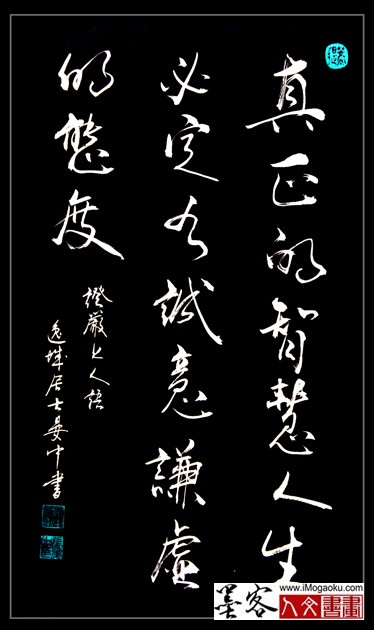 真正的智慧人生
必定有誠意謙虛
的態度
證嚴上人語
逸城居士晏中書
www.iMogaoku.com
墨客
人文書畫